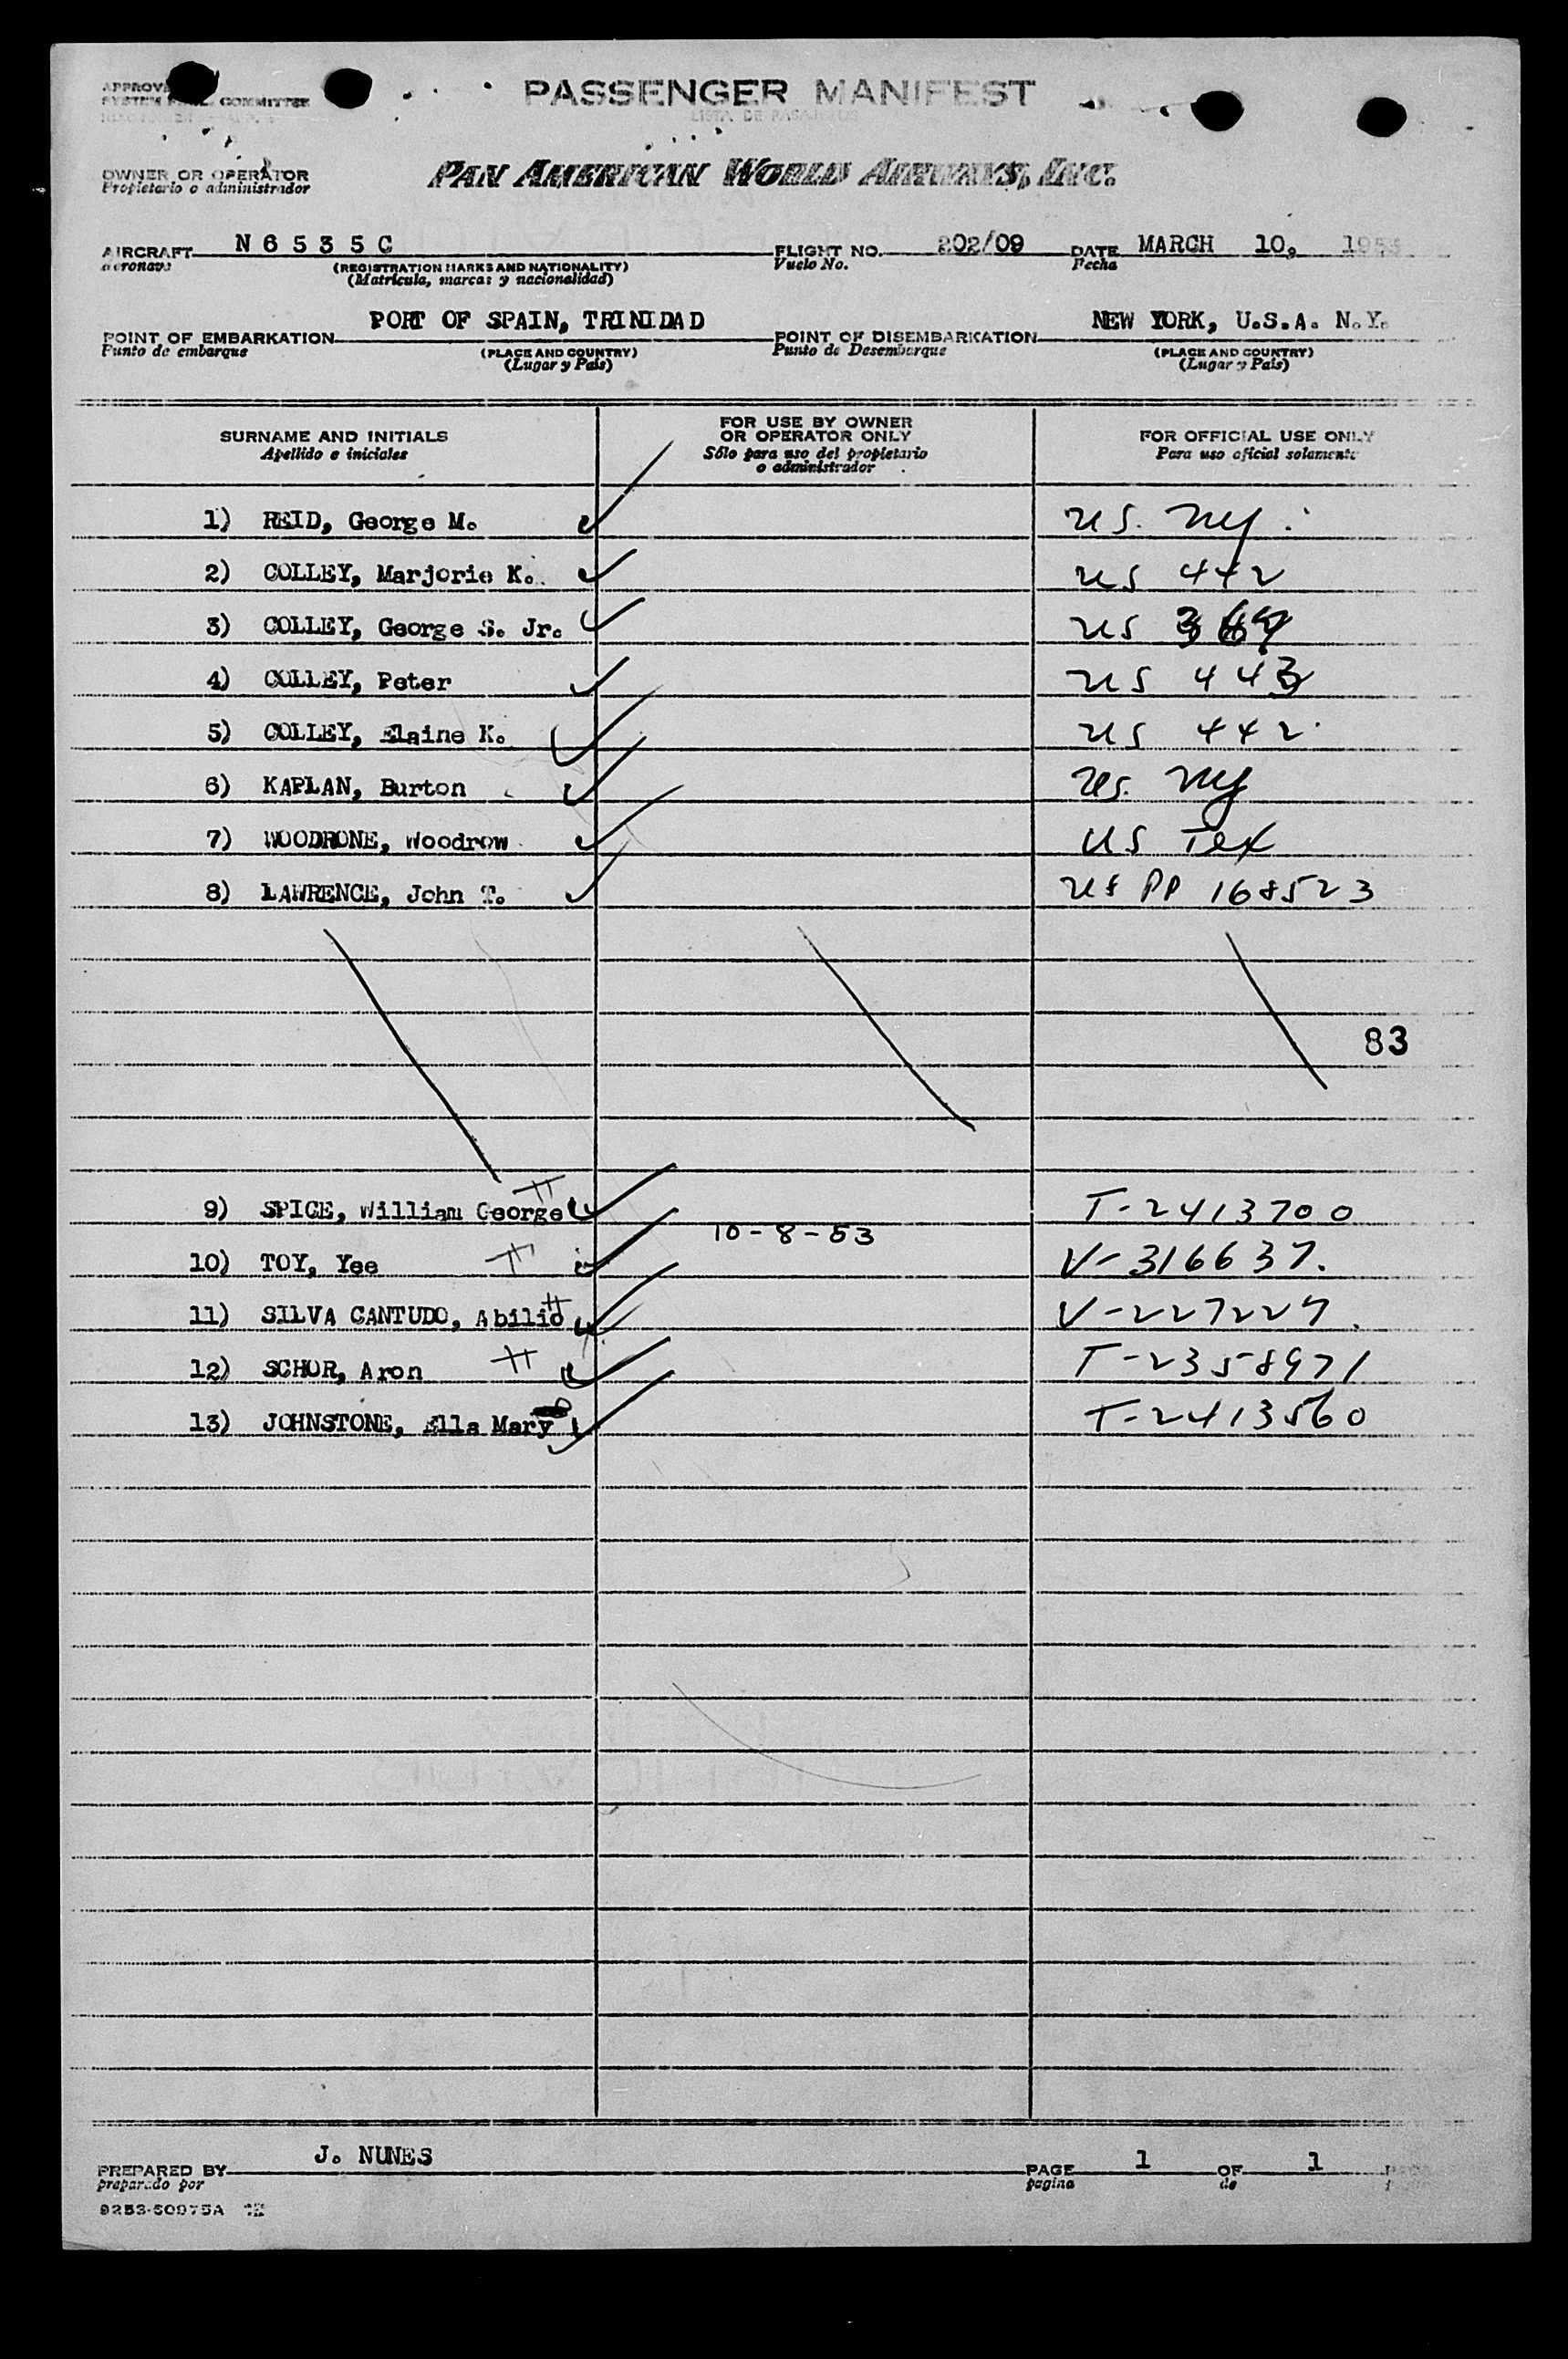 PASSENGER MANIFEST
LISTA DE PASAJEROS
OWNER OR OPERATOR
Propietario o administrador
PAN AMERICAN WORLD AIRWAYS, INC.
AIRCRAFT N 6 5 3 5 C FLIGHT NO. 202/09 DATE MARCH 10, 1953
aeronave (REGISTRATION MARKS AND NATIONALITY) Vuelo No. Fecha
(Matrícula, marcas y nacionalidad)
POINT OF EMBARKATION PORT OF SPAIN, TRINIDAD POINT OF DISEMBARKATION NEW YORK, U.S.A. N.Y.
Punto de embarque (PLACE AND COUNTRY) Punto de Desembarque (PLACE AND COUNTRY)
(Lugar y País) (Lugar y País)
SURNAME AND INITIALS
Apellido e iniciales
FOR USE BY OWNER
OR OPERATOR ONLY
Sólo para uso del propietario
o administrador
FOR OFFICIAL USE ONLY
Para uso oficial solamente
1) REID, George M. US. NY.
2) COLLEY, Marjorie K. US 442
3) COLLEY, George S. Jr. US
4) COLLEY, Peter US 443
5) COLLEY, Elaine K. US 442
6) KAPLAN, Burton US. NY
7) WOODRONE, Woodrow US Tex
8) LAWRENCE, John T. US PP 168523
83
9) SPICE, William George T-2413700
10-8-53
10) TOY, Yee V-316637.
11) SILVA CANTUDO, Abilio V-227227
12) SCHOR, Aron T-2358971
13) JOHNSTONE, Ella Mary T-2413560
PREPARED BY J. NUNES PAGE 1 OF 1
preparado por pagina de
9253-50975A